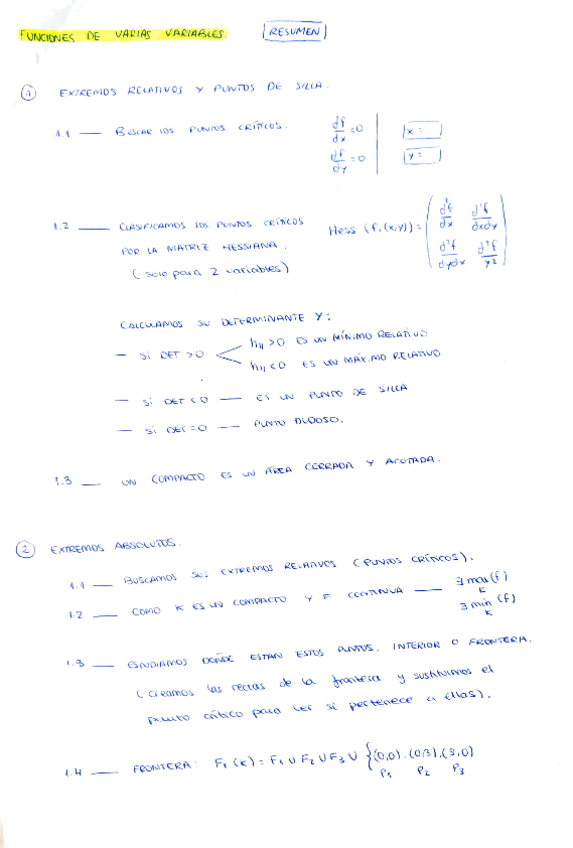 FUNCIONES DE VARIAS VARIABLES. RESUMEN
① EXTREMOS RELATIVOS Y PUNTOS DE SILLA.
1.1 — BUSCAR LOS PUNTOS CRÍTICOS. df/dx = 0 x =
df/dy = 0 y =
1.2 — CLASIFICAMOS LOS PUNTOS CRÍTICOS
POR LA MATRIZ HESSIANA.
(solo para 2 variables)
Hess (f,(x,y)) = ( d²f/dx d²f/dxdy
d²f/dydx d²f/y² )
CALCULAMOS SU DETERMINANTE Y:
— SI DET > 0 < h11 > 0 ES UN MÍNIMO RELATIVO
h11 < 0 ES UN MÁXIMO RELATIVO
— SI DET < 0 — ES UN PUNTO DE SILLA
— SI DET = 0 — PUNTO DUDOSO.
1.3 — UN COMPACTO ES UN ÁREA CERRADA Y ACOTADA.
② EXTREMOS ABSOLUTOS.
1.1 — BUSCAMOS SUS EXTREMOS RELATIVOS (PUNTOS CRÍTICOS).
1.2 — COMO K ES UN COMPACTO Y F CONTINUA — ∃ max (f) K
∃ min (f) K
1.3 — ESTUDIAMOS DÓNDE ESTAN ESTOS PUNTOS, INTERIOR O FRONTERA.
(creamos las rectas de la frontera y sustituimos el
punto crítico para ver si pertenece a ellas).
1.4 — FRONTERA: Fr (K) = F1 ∪ F2 ∪ F3 ∪ {(0,0), (0,3), (3,0)
P1 P2 P3